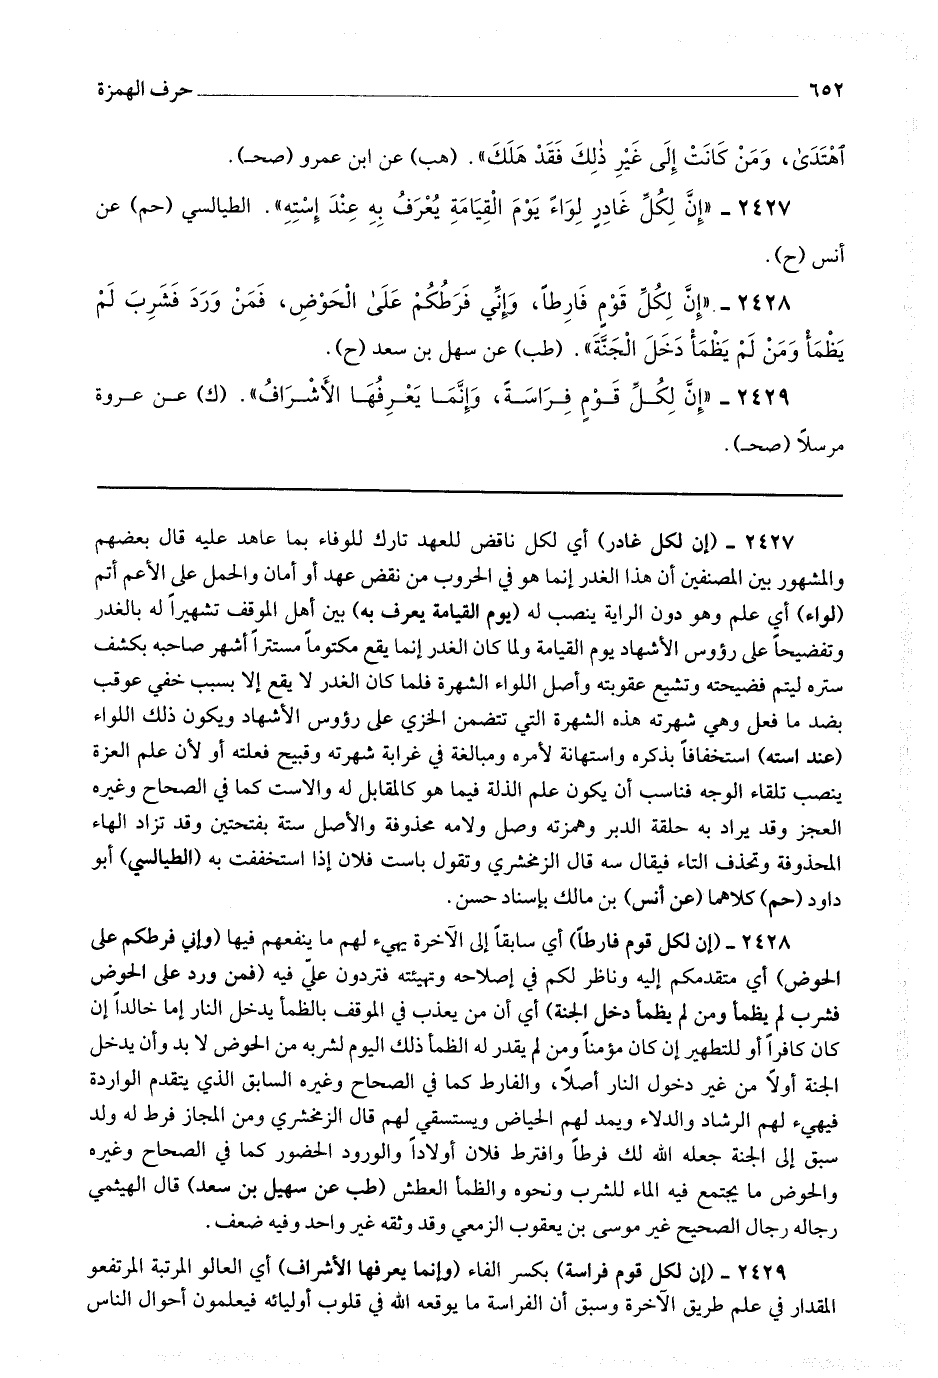 ٦٥٢ ـــــــــــــــــــــــــــــــــــــــــــــــــ حرف الهمزة
ٱهْتَدَىٰ، وَمَنْ كَانَتْ إِلَى غَيْرِ ذٰلِكَ فَقَدْ هَلَكَ». (هب) عن ابن عمرو (صحـ).
٢٤٢٧ ـ «إِنَّ لِكُلِّ غَادِرٍ لِوَاءً يَوْمَ الْقِيَامَةِ يُعْرَفُ بِهِ عِنْدَ إِسْتِهِ». الطيالسي (حم) عن
أنس (ح).
٢٤٢٨ ـ «إِنَّ لِكُلِّ قَوْمٍ فَارِطاً، وَإِنِّي فَرَطُكُمْ عَلَىٰ الْحَوْضِ، فَمَنْ وَرَدَ فَشَرِبَ لَمْ
يَظْمَأْ وَمَنْ لَمْ يَظْمَأْ دَخَلَ الْجَنَّةَ». (طب) عن سهل بن سعد (ح).
٢٤٢٩ ـ «إِنَّ لِكُـلِّ قَـوْمٍ فِـرَاسَـةً، وَإِنَّمَـا يَعْـرِفُهَـا الأَشْـرَافُ». (ك) عـن عـروة
مرسلاً (صحـ).
٢٤٢٧ ـ (إن لكل غادر) أي لكل ناقض للعهد تارك للوفاء بما عاهد عليه قال بعضهم
والمشهور بين المصنفين أن هذا الغدر إنما هو في الحروب من نقض عهد أو أمان والحمل على الأعم أتم
(لواء) أي علم وهو دون الراية ينصب له (يوم القيامة يعرف به) بين أهل الموقف تشهيراً له بالغدر
وتفضيحاً على رؤوس الأشهاد يوم القيامة ولما كان الغدر إنما يقع مكتوماً مستتراً أشهر صاحبه بكشف
ستره ليتم فضيحته وتشيع عقوبته وأصل اللواء الشهرة فلما كان الغدر لا يقع إلا بسبب خفي عوقب
بضد ما فعل وهي شهرته هذه الشهرة التي تتضمن الخزي على رؤوس الأشهاد ويكون ذلك اللواء
(عند استه) استخفافاً بذكره واستهانة لأمره ومبالغة في غرابة شهرته وقبيح فعلته أو لأن علم العزة
ينصب تلقاء الوجه فناسب أن يكون علم الذلة فيما هو كالمقابل له والاست كما في الصحاح وغيره
العجز وقد يراد به حلقة الدبر وهمزته وصل ولامه محذوفة والأصل ستة بفتحتين وقد تزاد الهاء
المحذوفة وتحذف التاء فيقال سه قال الزمخشري وتقول باست فلان إذا استخففت به (الطيالسي) أبو
داود (حم) كلاهما (عن أنس) بن مالك بإسناد حسن.
٢٤٢٨ ـ (إن لكل قوم فارطاً) أي سابقاً إلى الآخرة يهيء لهم ما ينفعهم فيها (وإني فرطكم على
الحوض) أي متقدمكم إليه وناظر لكم في إصلاحه وتهيئته فتردون عليّ فيه (فمن ورد على الحوض
فشرب لم يظمأ ومن لم يظمأ دخل الجنة) أي أن من يعذب في الموقف بالظمأ يدخل النار إما خالداً إن
كان كافراً أو للتطهير إن كان مؤمناً ومن لم يقدر له الظمأ ذلك اليوم لشربه من الحوض لا بد وأن يدخل
الجنة أولاً من غير دخول النار أصلاً، والفارط كما في الصحاح وغيره السابق الذي يتقدم الواردة
فيهيء لهم الرشاد والدلاء ويمد لهم الحياض ويستسقي لهم قال الزمخشري ومن المجاز فرط له ولد
سبق إلى الجنة جعله الله لك فرطاً وافترط فلان أولاداً والورود الحضور كما في الصحاح وغيره
والحوض ما يجتمع فيه الماء للشرب ونحوه والظمأ العطش (طب عن سهيل بن سعد) قال الهيثمي
رجاله رجال الصحيح غير موسى بن يعقوب الزمعي وقد وثقه غير واحد وفيه ضعف.
٢٤٢٩ ـ (إن لكل قوم فراسة) بكسر الفاء (وإنما يعرفها الأشراف) أي العالو المرتبة المرتفعو
المقدار في علم طريق الآخرة وسبق أن الفراسة ما يوقعه الله في قلوب أوليائه فيعلمون أحوال الناس